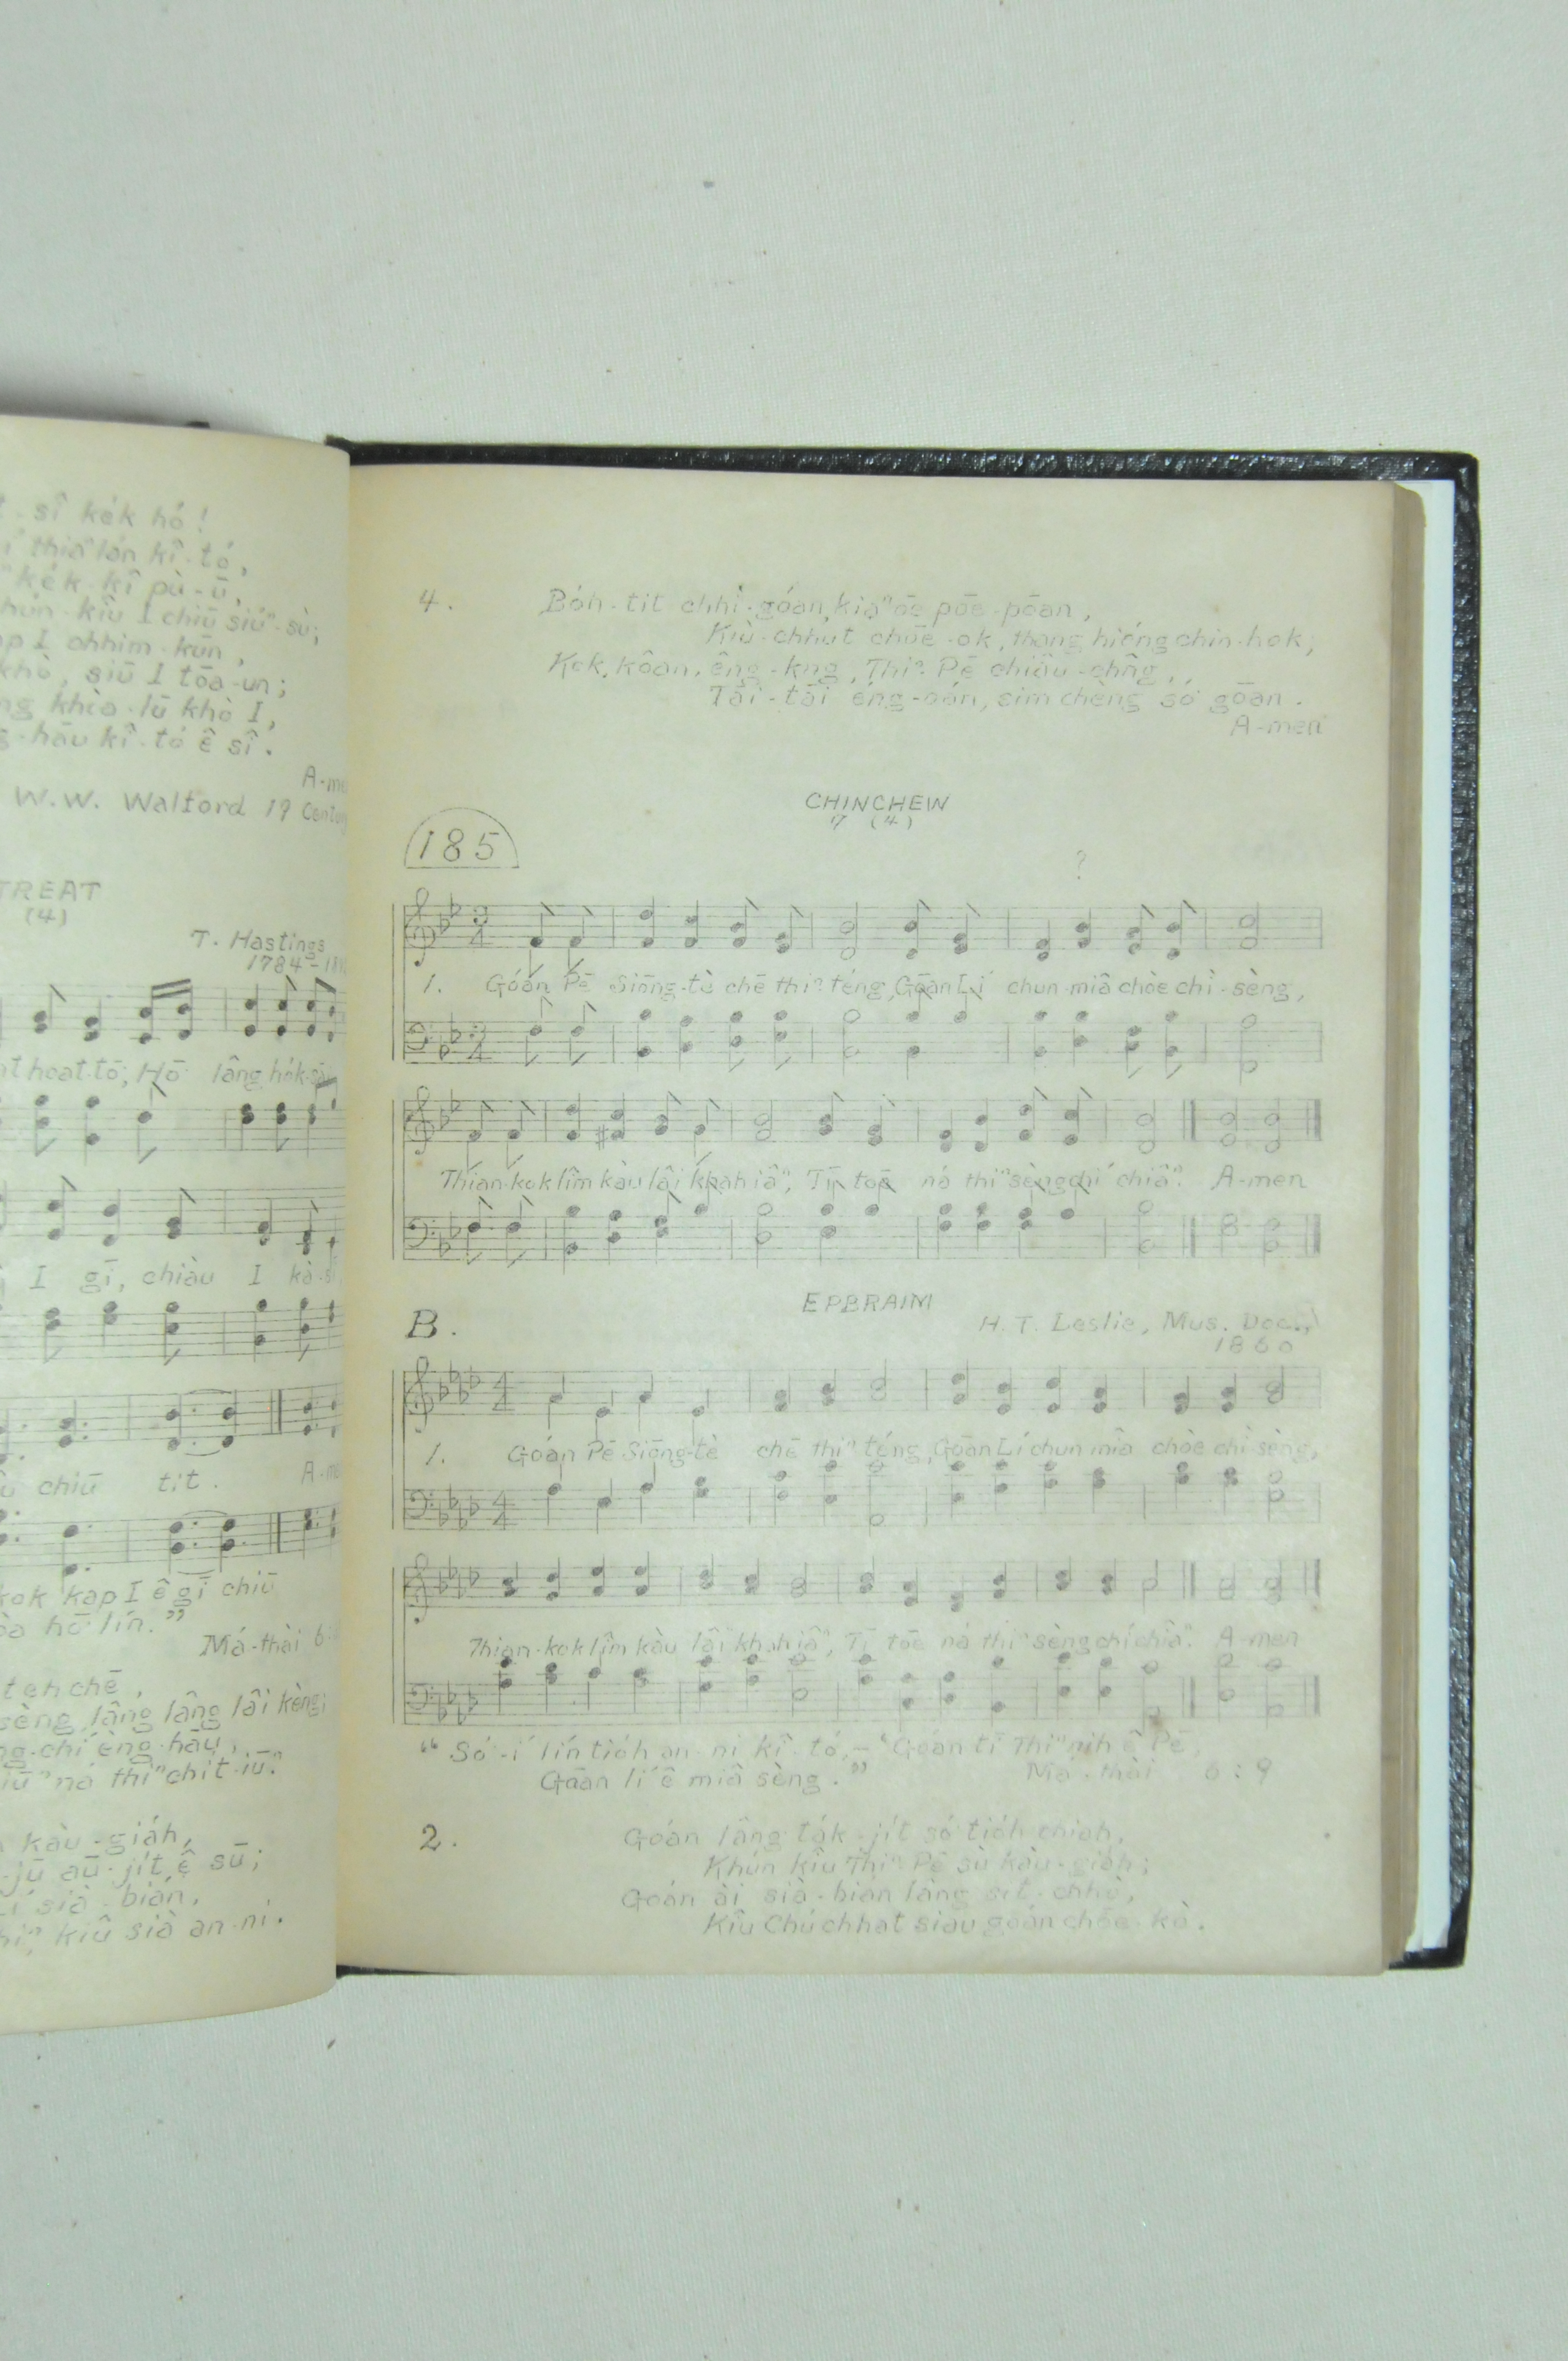 sî kék hó!
thiaⁿ lán kî-tó,
kék-kî pù-ū,
kiû I chiū siúⁿ-sù;
I chhim-kūn,
khò, siū I tōa-un;
khiā-lū khò I,
hāu kî-tó ê sî.
W. W. Walford 19
(4)
T. Hastings
1784-
hoat-tō; Hō lâng hók-sāi
I gī, chiàu I kà-sī
chiū tit.
kok kap I ê gī chiū
hō lín."
Má-thài 6:
teh chē,
sèng lâng lâng lâi kèng;
chí èng-hāu,
ná thiⁿ chít-iūⁿ.
kàu-giáh,
jū aū-jít ê sū;
sià-bián,
kiû sià an-ni.
4. Bóh-tit chhì-góan, kiaⁿ ōe pōe-pōan,
Kiù-chhut chōe-ok, thang hióng chin-hok;
Kok, kôan, êng-kng, Thiⁿ Pē chiâu-chn̂g,
Tāi-tāi éng-oán, sim chèng só͘ gōan.
A-men
CHINCHEW
7 (4)
185
?
1. Góán Pē Siōng-tè chē thiⁿ-téng, Gōan Lí chun-miâ chòe chì-sèng,
Thian-kok lîm kàu lâi khah iâⁿ, Tī tōe ná thiⁿ sèng chí chiâⁿ. A-men
EPBRAIM
B.
H. T. Leslie, Mus. Doc.,
1860
1. Goán Pē Siōng-tè chē thiⁿ téng, Gōan Lí chun miâ chòe chì-sèng,
Thian-kok lîm kàu lâi khah iâⁿ, Tī tōe ná thiⁿ sèng chí chiâⁿ. A-men
"Só͘-í lín tióh an-ni kî-tó,— 'Goan tī Thiⁿ nih ê Pē,
Gōan lí ê miâ sèng."
Má-thài 6:9
2. Goán lâng ták-jít só͘ tióh chiah,
Khún kiû Thiⁿ Pē sù kàu-giáh;
Goán ài sià-bián lâng sit-chhò,
Kiû Chú chhat siau goán chōe-kò.